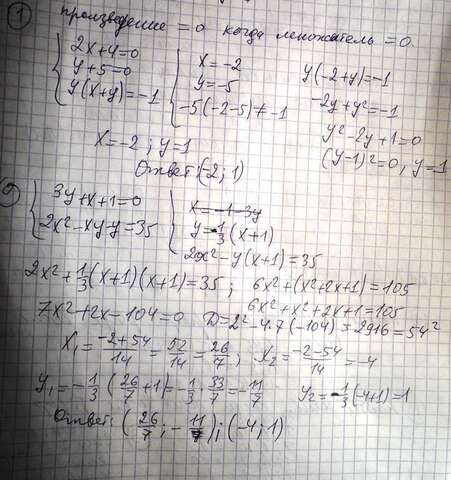 1 произведение = 0 когда множитель = 0.
2x+4=0 x=-2 y(-2+y)=-1
y+5=0 y=-5 -2y+y²=-1
y(x+y)=-1 -5(-2-5)≠-1 y²-2y+1=0
x=-2; y=1 (y-1)²=0, y=1
Ответ: (-2; 1)
2 3y+x+1=0 x=-1-3y
2x²-xy-y=35 y=-1/3(x+1)
2x²-y(x+1)=35
2x²+1/3(x+1)(x+1)=35; 6x²+(x²+2x+1)=105
6x²+x²+2x+1=105
7x²+2x-104=0 D=2²-4·7(-104)=2916=54²
x₁=(-2+54)/14=52/14=26/7; x₂=(-2-54)/14=-4
y₁=-1/3(26/7+1)=-1/3·33/7=-11/7 y₂=-1/3(-4+1)=1
Ответ: (26/7; -11/7); (-4; 1)